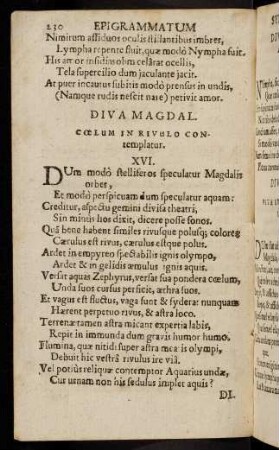 230 EPIGRAMMATUM
Nimirum assiduos oculis stillantibus imbres,
Lympha repente fluit, quæ modò Nympha fuit.
His amor insidias olim celârat ocellis,
Tela supercilio dum jaculante jacit.
At puer incautus subitò modò prensus in undis,
(Namque rudis nescit nare) petivit amor.
DIVA MAGDAL.
CŒLUM IN RIVULO CON-
templatur.
XVI.
DUm modò stelliferos speculatur Magdalis
orbes,
Et modò perspicuam dum speculatur aquam:
Creditur, aspectu gemini divisa theatri,
Sin minùs hos dixit, dicere posse sonor.
Quâ bene habent similes rivusque polusq; colores
Cærulus est rivus, cærulus estque polus.
Ardet in empyreo spectabilis ignis olympo,
Ardet & in gelidis æmulus ignis aquis.
Versat aquas Zephyrus, versat sua pondera cœlum,
Unda suos cursus perficit, æthra suos.
Et vagus est fluctus, vaga sunt & sydera: nunquam
Hærent perpetuo rivus, & astra loco.
Terrenæ tamen astra micant expertia labis,
Repit in immunda dum gravis humor humo.
Flumina, quæ nitidi super astra meatis olympi,
Debuit hic vestrâ rivulus ire viâ.
Vel potiùs reliquæ contemptor Aquarius undæ,
Cur urnam non his sedulus implet aquis?
DI.